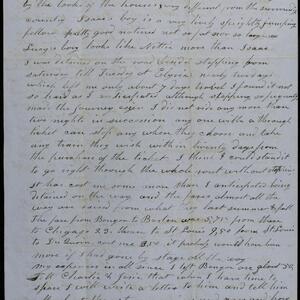 by the looks of the houses very different from the
country Isaac's boy is a very lively sprightly jumping
fellow pretty good natured not so fat nor so large as
boy looks like Nettie more than Isaac
I was detained on the road besides stopping from
Saturday till Tuesday at Elyria nearly two days
which left me only about 7 days travel I found it not
so hard as I anticipated although stopping so frequently
made the journey easier I did not ride any more than
two nights in succession any one with a through
ticket can stop any when they choose and take
any train they wish within twenty days from
the purchase of the ticket I think I could stand it
to go right through the whole rout without
It has cost me some more than I anticipated being
detained on the way and the fares almost all the
way are raised from what they last
The fare from Bangor to Boston was 5,75 from there
to Chicago 23. them to St Louis 9,50 from St Louis
to Du Quoin cost me it probably would have been
more if I had gone by stage all the way
my expenses in all since I left Bangor are about 50,
Tell Charlie & Jane that when I have time to
spare I will write a letter to them and tell him